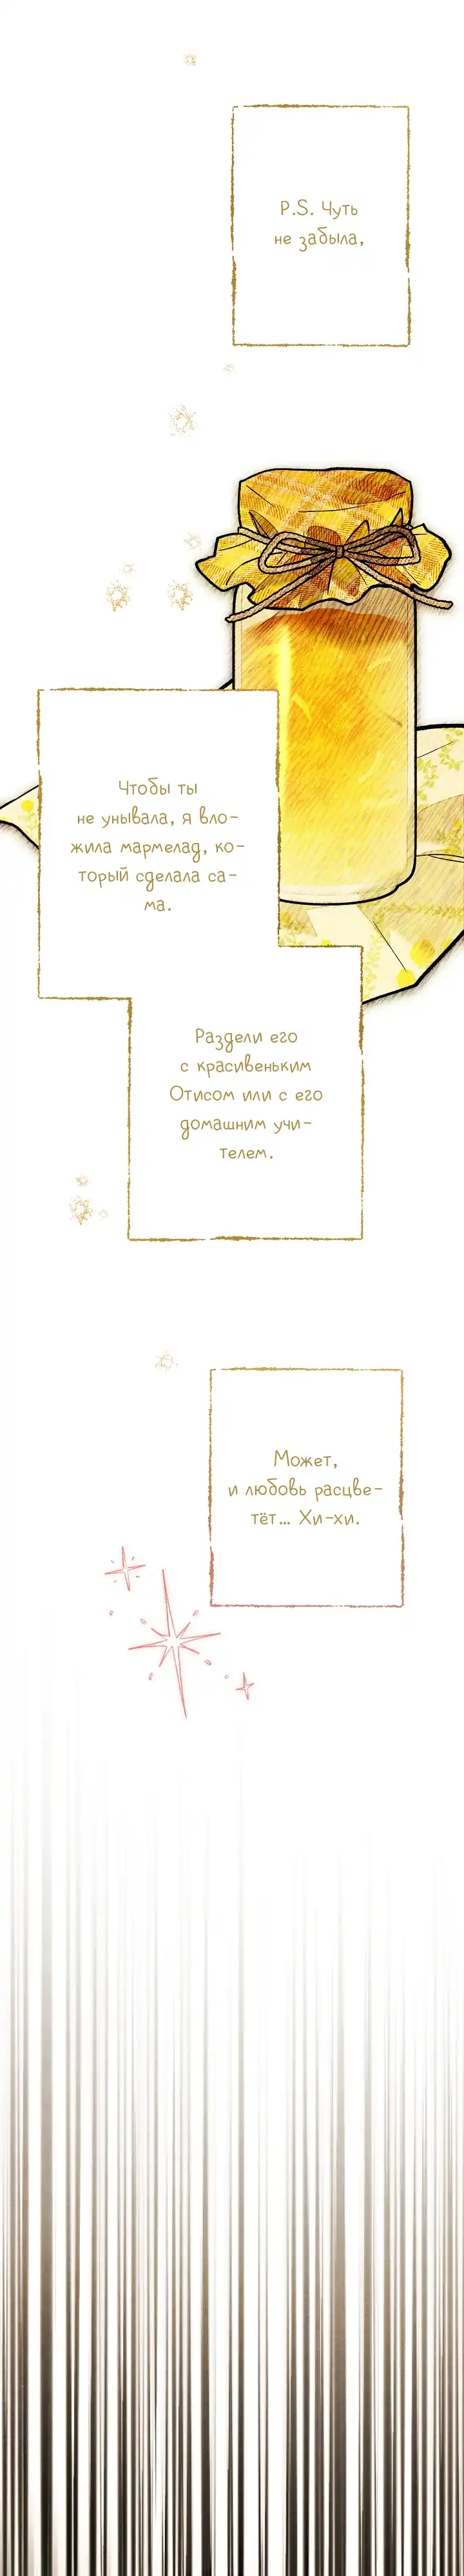 P.S. Чуть
не забыла,
Чтобы ты
не унывала, я вло-
жила мармелад, ко-
торый сделала са-
ма.
Раздели его
с красивеньким
Отисом или с его
домашним учи-
телем.
Может,
и любовь расцве-
тёт... Хи-хи.